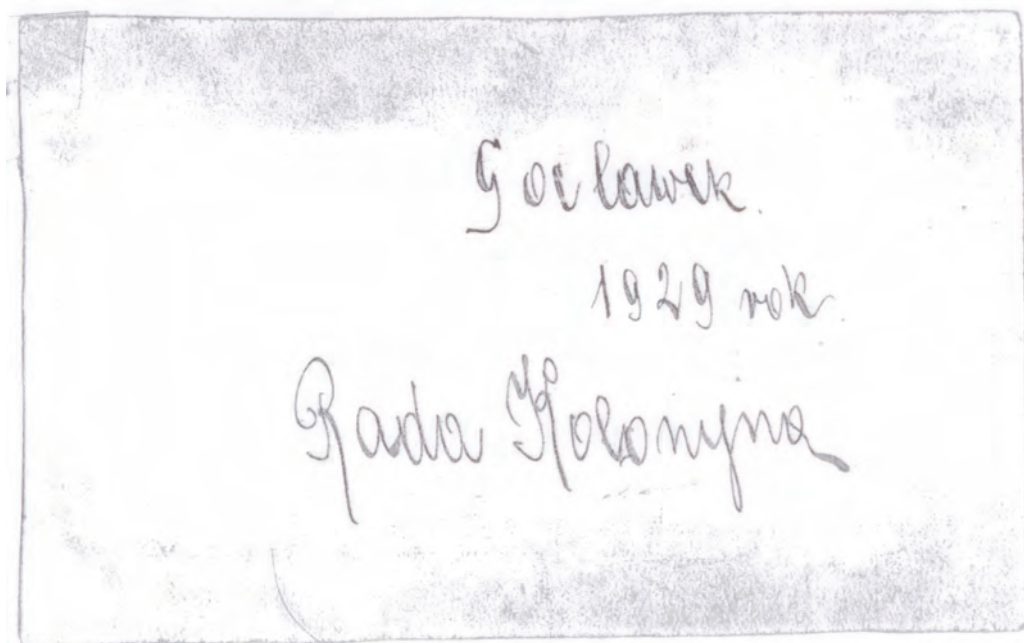 Gocławek.
1929 rok.
Rada Kolonijna